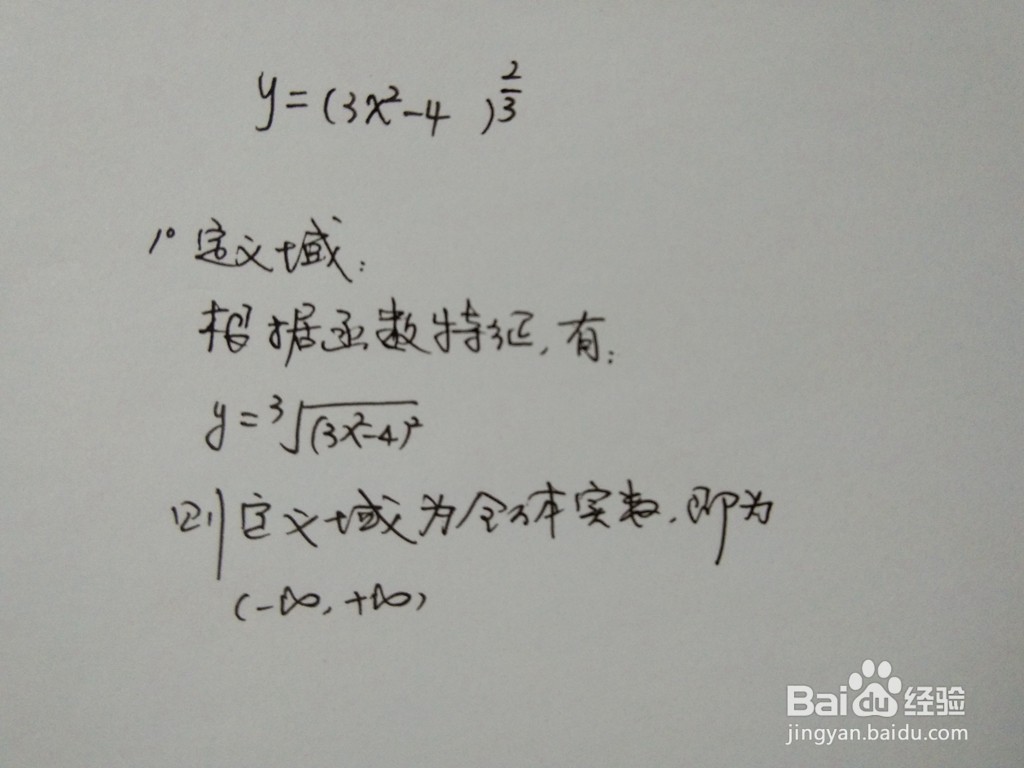 y=(3x²-4 )^{2/3}
1° 定义域:
根据函数特征,有:
y=³√(3x²-4)²
则定义域为全体实数,即为
(-∞,+∞)
Baidu经验
jingyan.baidu.com